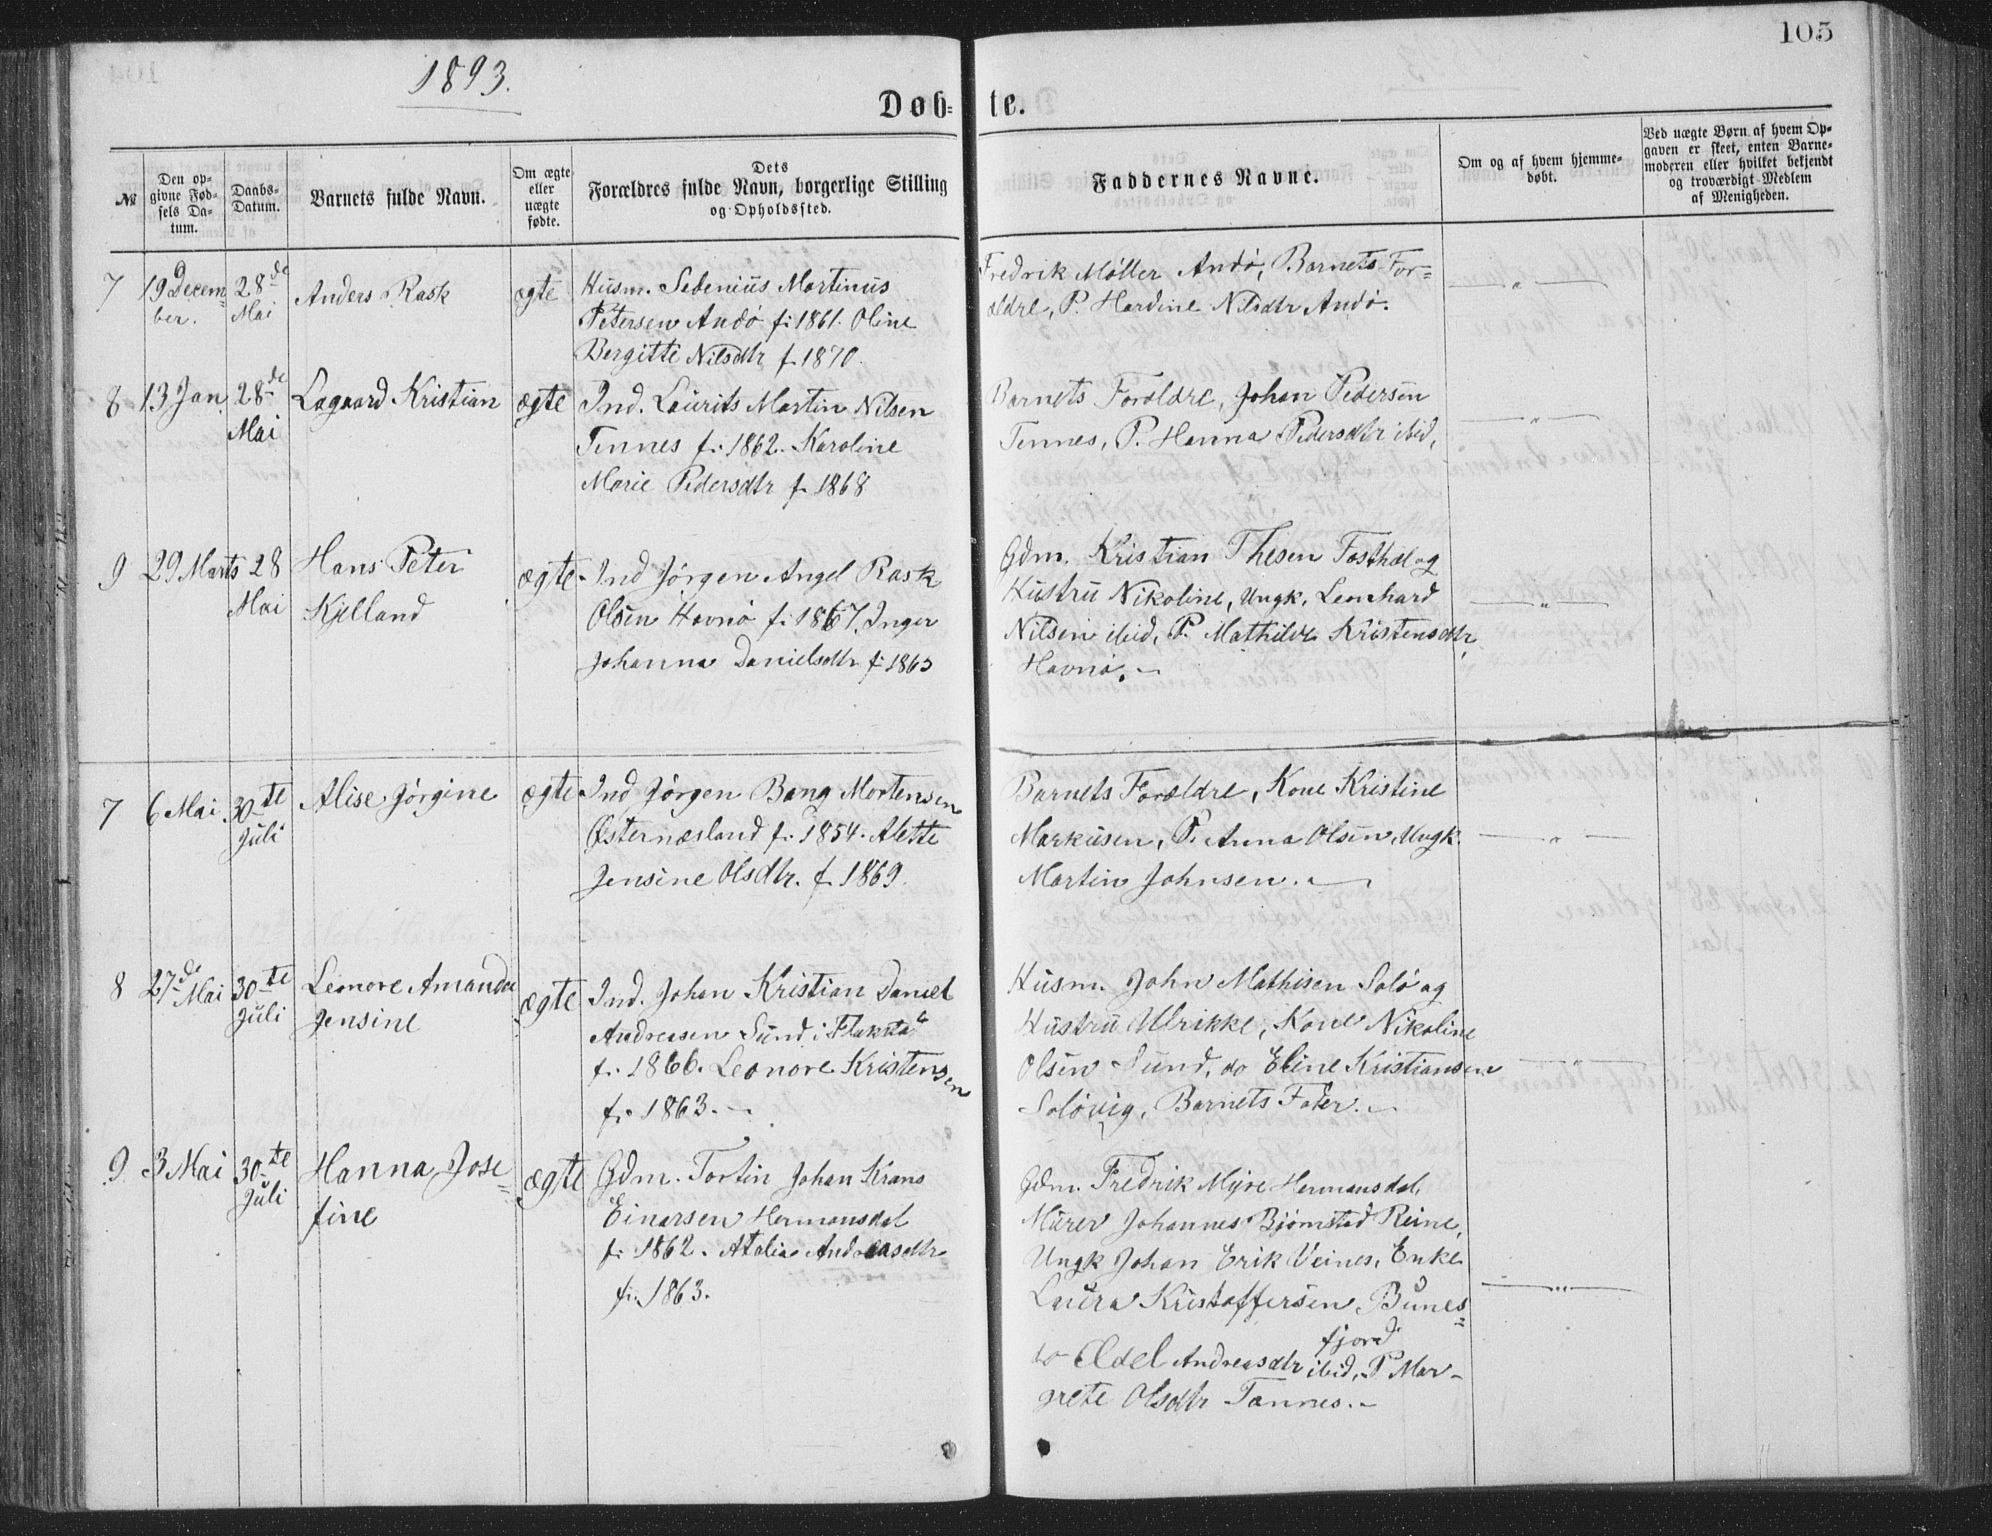 105
1893.
Døb-
te.
№
Den op-
givne Fød-
sels Da-
tum.
Daabs-
Datum.
Barnets fulde Navn.
Om ægte
eller
uægte
fødte.
Dets
Forældres fulde Navn, borgerlige Stilling
og Opholdssted.
Faddernes Navne.
Om og af hvem hjemme-
døbt.
Ved uægte Børn af hvem Op-
gaven er skeet, enten Barne-
moderen eller hvilket bekjendt
og troværdigt Medlem
af Menigheden.
7
19 Decem=
ber.
28de
Mai
Anders Rask
ægte
Husm. Sedenius Martinus
Petersen Andø f: 1861. Oline
Bergitte Nilsdtr f. 1870.
Fredrik Møller Andø, Barnets For=
ældre, P. Hardine Nilsdtr Andø.
— " —
8
13 Jan
28de
Mai
Lagaard Kristian
ægte
Ind. Laurits Martin Nilsen
Tennes f: 1862. Karoline
Marie Pedersdtr f. 1868
Barnets Forældre, Johan Pedersen
Tennes, P. Hanna Pedersdtr ibid,
— " —
9
29 Marts
28
Mai
Hans Peter
Kjelland
ægte
Ind Jørgen Angel Rask
Olsen Havnø f: 1867. Inger
Johanna Danielsdtr f: 1865
Gdm. Kristian Thesen Fosthæl og
Hustru Nikoline, Ungk. Leonhard
Nilsen ibid, P. Mathilde Kristensdtr,
Havnø. —
— " —
7
6 Mai
30te
Juli
Alise Jørgine
ægte
Ind Jørgen Bang Mortensen
Østernæsland f. 1854. Alette
Jensine Olsdtr. f. 1869.
Barnets Forældre, Kone Kristine
Markusen, P. Anna Olsen, Ungk.
Martin Johnsen. —
— " —
8
27de
Mai
30te
Juli
Leonore Amanda
Jensine
ægte
Ind. Johan Kristian Daniel
Andreasen Sund i Flakstad
f. 1866. Leonore Kristensen
f. 1863. —
Husm. John Mathisen Solø og
Hustru Ulrikke, Kone Nikoline
Olsen Sund, do Eline Kristiansen
Soløvig, Barnets Fader. —
— " —
9
3 Mai
30te
Juli
Hanna Jose=
fine
ægte
Gdm. Tortin Johan Krans
Einarsen Hermansdal
f: 1862. Atalia Andreasdtr
f: 1863.
Gdm. Fredrik Myre Hermansdal,
Murer Johannes Bjørnstad Reine,
Ungk Johan Erik Veines, Enke
Laura Kristoffersen, Bunes=
fjord
do Ædel Andreasdtr ibid, P Mar-
grete Olsdtr Tannes. —
— " —